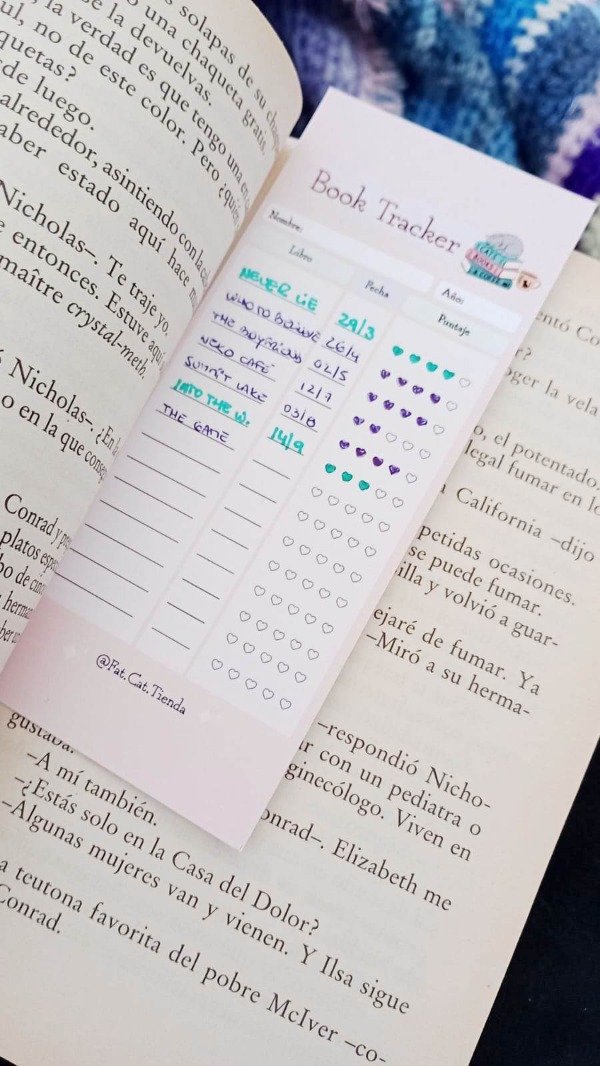 solapas de su
o una chaqueta gratis.
e la devuelvas.
la verdad es que tengo una
ul, no de este color. Pero ¿quién
quetas?
de luego.
alrededor, asintiendo con la
aber estado aquí hace
Nicholas–. Te traje yo.
entonces. Estuve aquí
maître crystal-meth.
Nicholas–. ¿En
o en la que
Conrad y
platos
bo de
Book Tracker
Nombre:
Año:
Libro Fecha Puntaje
NEVER LIE 29/3
WHO TO BELIEVE 26/4
THE BOYFRIEND 02/5
NEKO CAFÉ 12/7
SUMMIT LAKE 03/8
INTO THE W. 14/9
THE GAME
@Fat.Cat.Tienda
entó Co
r?
oger la vela
o, el potentado,
legal fumar en
California –dijo
petidas ocasiones.
se puede fumar.
illa y volvió a guar-
ejaré de fumar. Ya
–Miró a su herma-
–respondió Nicho-
ar con un pediatra o
ginecólogo. Viven en
gustaba.
onrad–. Elizabeth me
–A mí también.
–¿Estás solo en la Casa del Dolor?
–Algunas mujeres van y vienen. Y Ilsa sigue
a teutona favorita del pobre McIver –co-
Conrad.